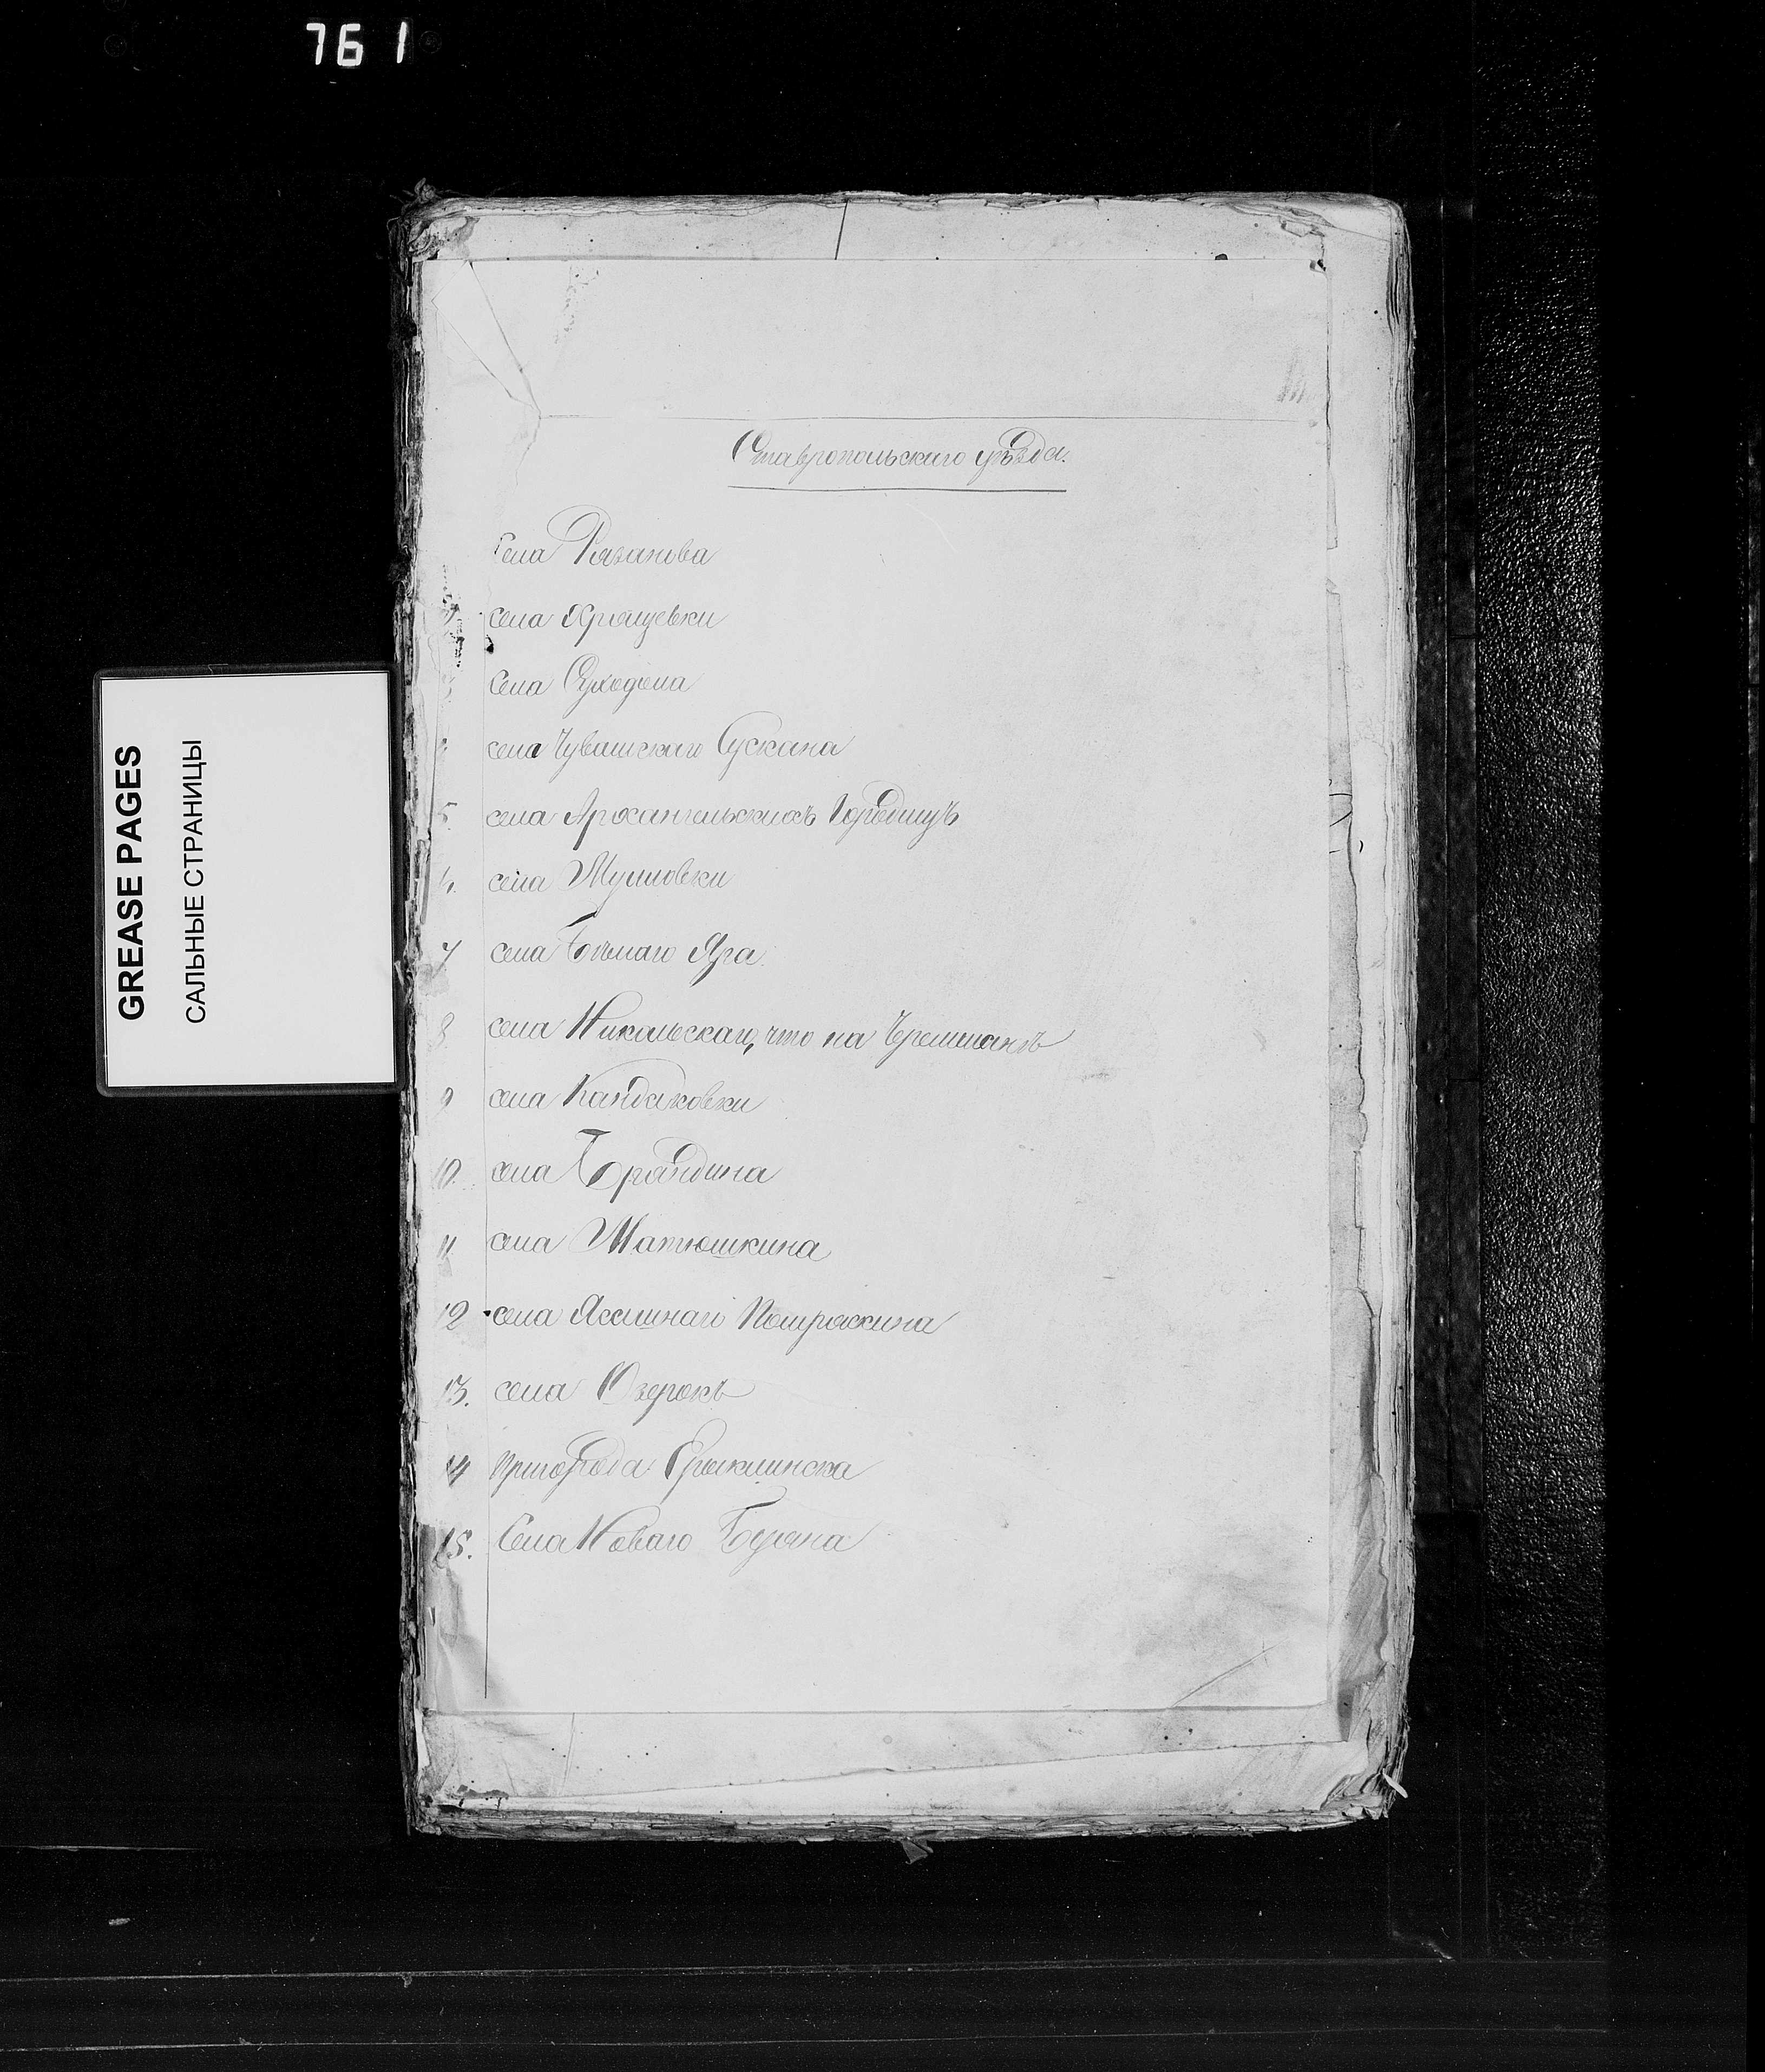 76 1
GREASE PAGES
САЛЬНЫЕ СТРАНИЦЫ
Ставропольскаго уѣзда.
села Рязанова
села Хрящевки
Села Суходола
села Чувашскаго Сускана
5. села Архангельскихъ Городищъ
села Мулловки
7 села Бѣлаго Яра
8. села Никольскаго, что на Черемшанѣ
9 села Кандаковки
10. села Брандина
11. села Матюшкина
12 села Ясашнаго Помряскина
13. села Озерокъ
14 пригорода Ерыклинска
15. Села Новаго Буяна